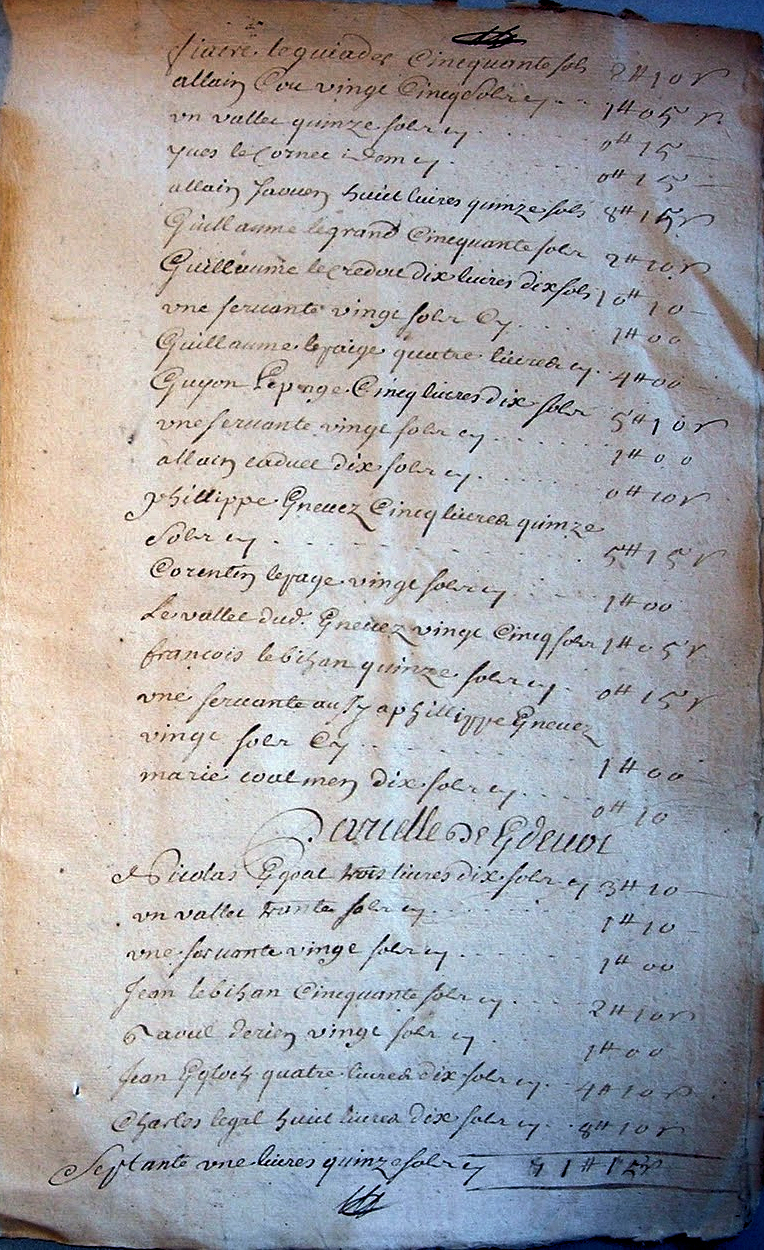 fiacre le guiader Cincquante sols 2# 10 s
allain Cou vingt Cincq solz cy . . . 1# 05 s
vn vallet quinze solz cy . . . . . . 0# 15
yues le Cornec idem cy . . . . . . 0# 15
allain Jaouen huict liures quinze sols 8# 15 s
Guillaume le grand Cincquante solz 2# 10 s
Guillaume le Credou dix liures dix sols 10# 10
vne seruante vingt solz Cy . . . . . 1# 00
Guillaume le page quatre liures cy . 4# 00
Guyon Cincq liures dix solz 5# 10 s
vne seruante vingt solz cy . . . . . 1# 00
allain caduec dix solz cy . . . . . 0# 10 s
phillippe Gneuez Cincq liures quinze
Solz cy . . . . . . . . . . 5# 15 s
Corentin le page vingt solz cy . . . 1# 00
Le vallet dud. Gneuez vingt Cincq solz 1# 05 s
francois le bihan quinze solz cy . . 0# 15 s
vne seruante au phillippe Gneuez
vingt solz Cy . . . . . . . . 1# 00
marie coatmen dix solz cy . . . . 0# 10
de
Nicolas Ggoat trois liures dix solz cy 3# 10
vn vallet trante solz cy . . . . . . 1# 10
vne seruante vingt solz cy . . . . . 1# 00
Jean le bihan Cincquante solz cy . . . 2# 10 s
Raoul derien vingt solz cy . . . . 1# 00
Jean quatre liures dix solz cy . 4# 10 s
Charles le gal huict liures dix solz cy . 8# 10 s
Septante vne liures quinze solz cy 71# 15 s